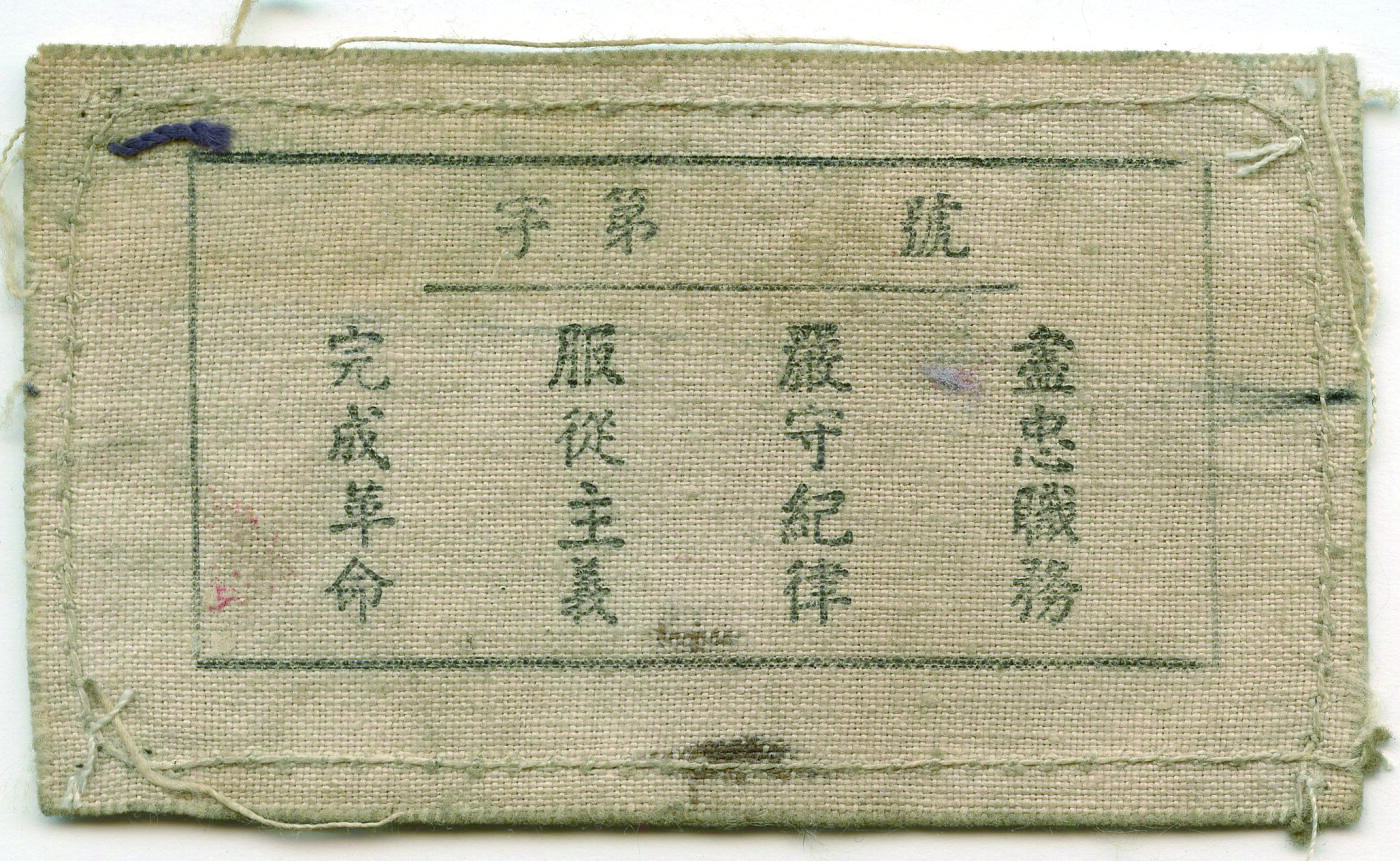 字第　　　號
盡忠職務
嚴守紀律
服從主義
完成革命